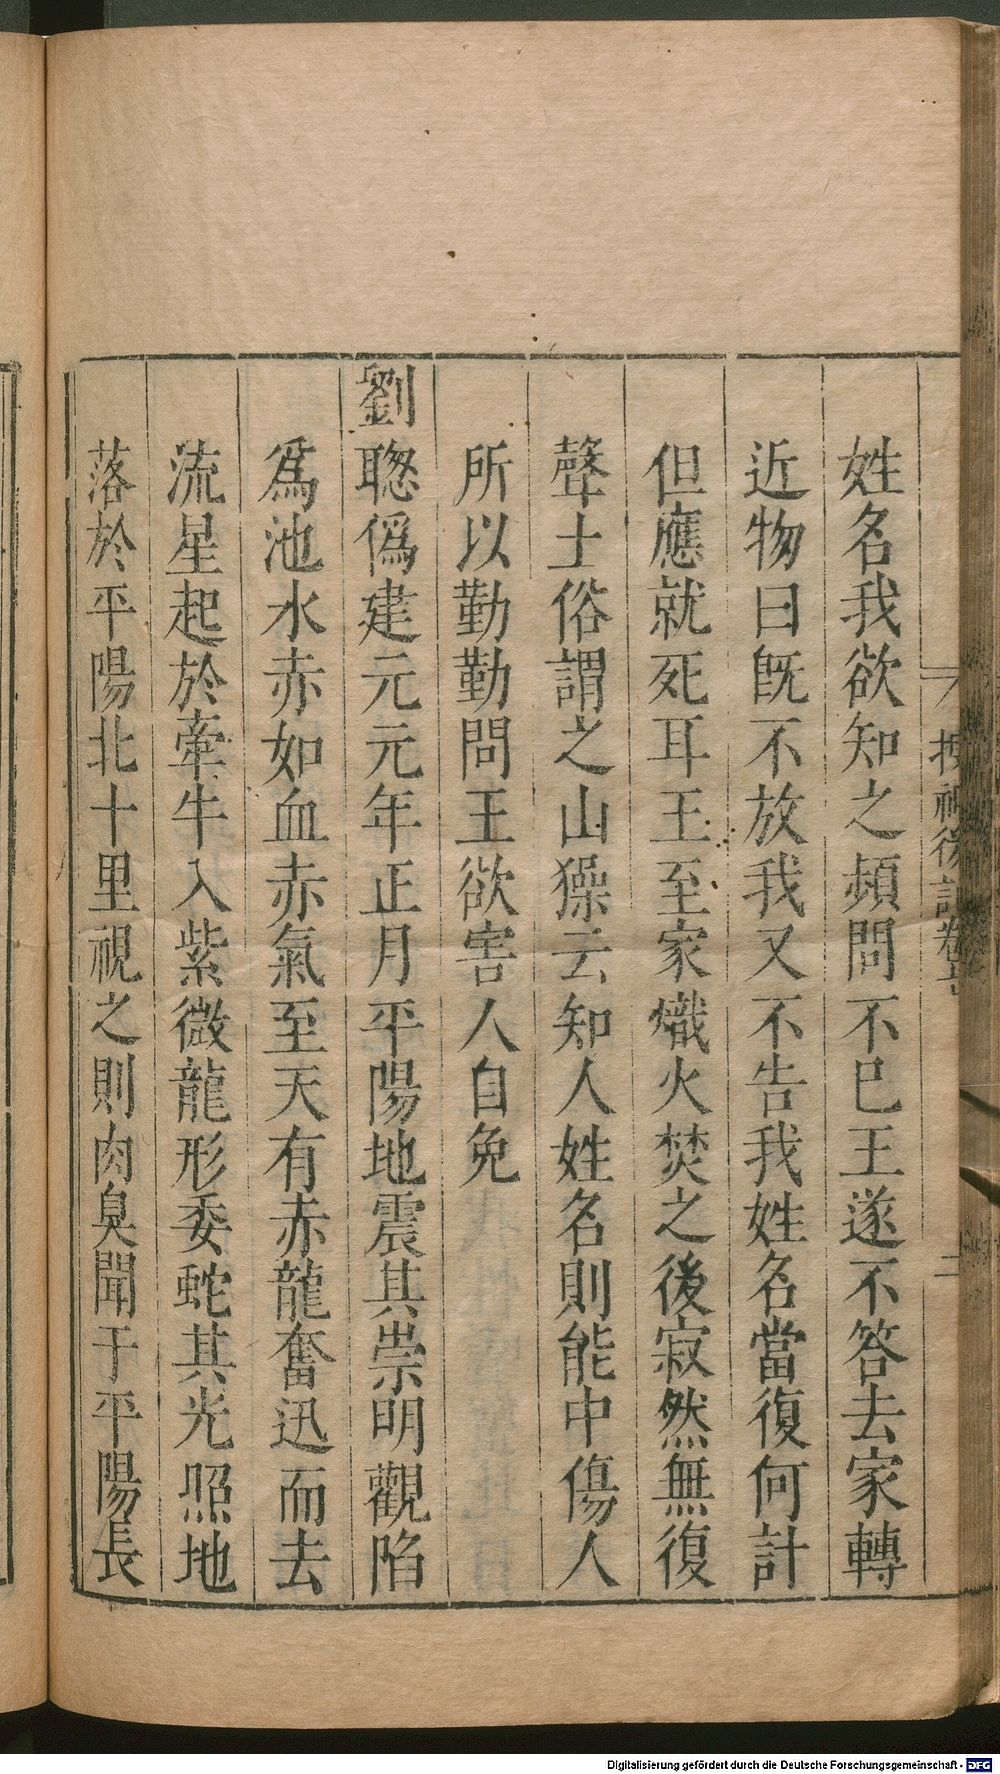 搜神後記卷七
二
姓名我欲知之頻問不巳王遂不答去家轉
近物曰旣不放我又不告我姓名當復何計
但應就死耳王至家熾火焚之後寂然無復
聲士俗謂之山猱云知人姓名則能中傷人
所以勤勤問王欲害人自免
劉聦僞建元元年正月平陽地震其崇明觀陷
爲池水赤如血赤氣至天有赤龍奮迅而去
流星起於牽牛入紫微龍形委蛇其光照地
落於平陽北十里視之則肉臭聞于平陽長
Digitalisierung gefördert durch die Deutsche Forschungsgemeinschaft - DFG